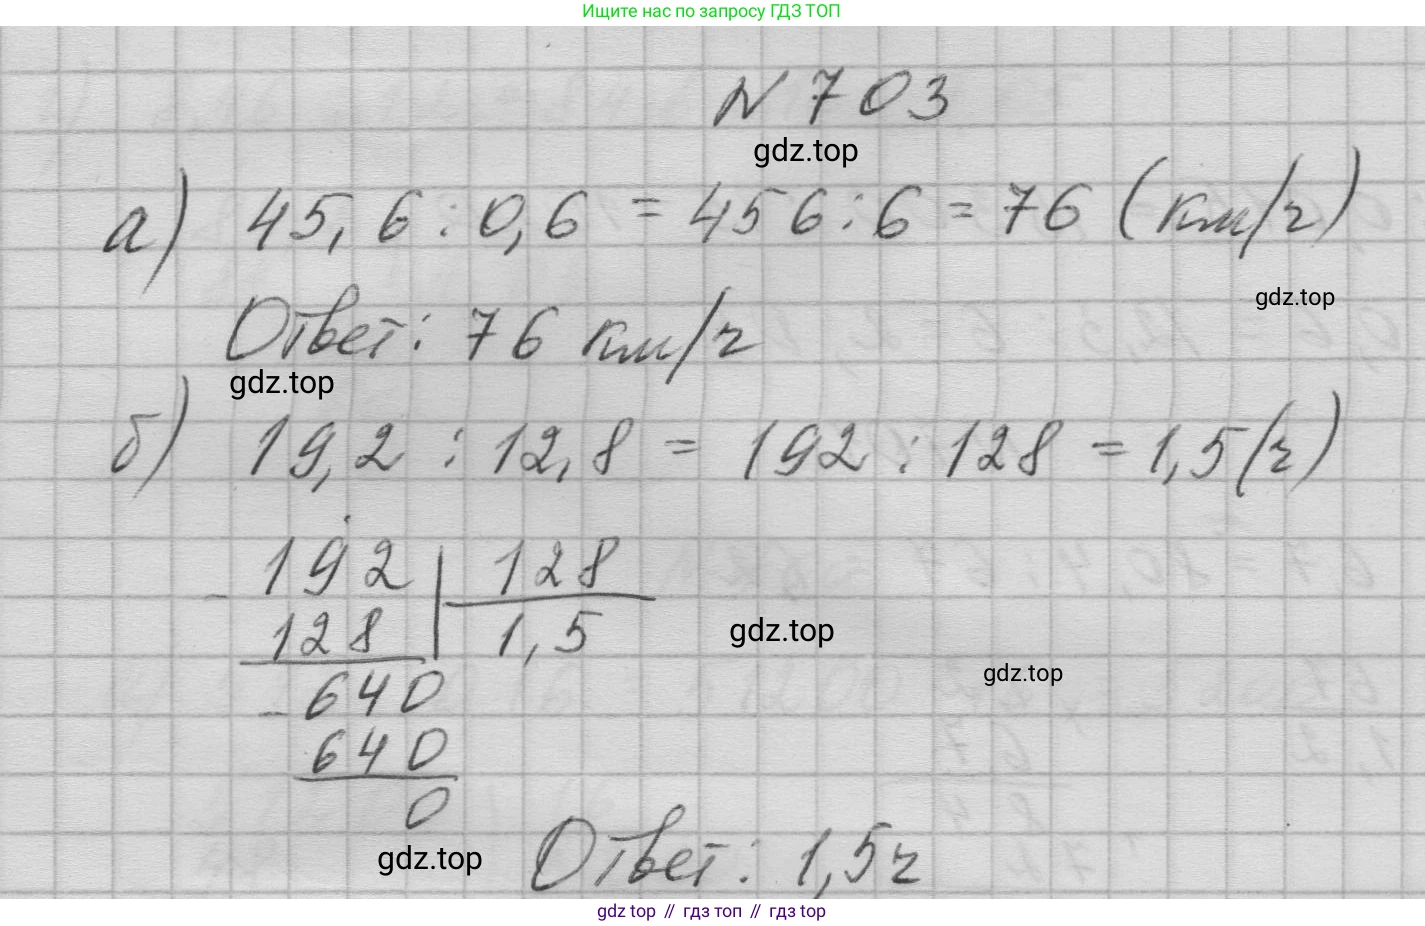 Ищите нас по запросу ГДЗ ТОП
N 703
gdz.top
а) 45,6 : 0,6 = 456 : 6 = 76 (км/ч)
gdz.top
Ответ: 76 км/ч
gdz.top
б) 19,2 : 12,8 = 192 : 128 = 1,5 (ч)
- 192 | 128
128 | 1,5
gdz.top
gdz.top
- 640
640
0
gdz.top
Ответ: 1,5 ч
gdz top // гдз топ // гдз top